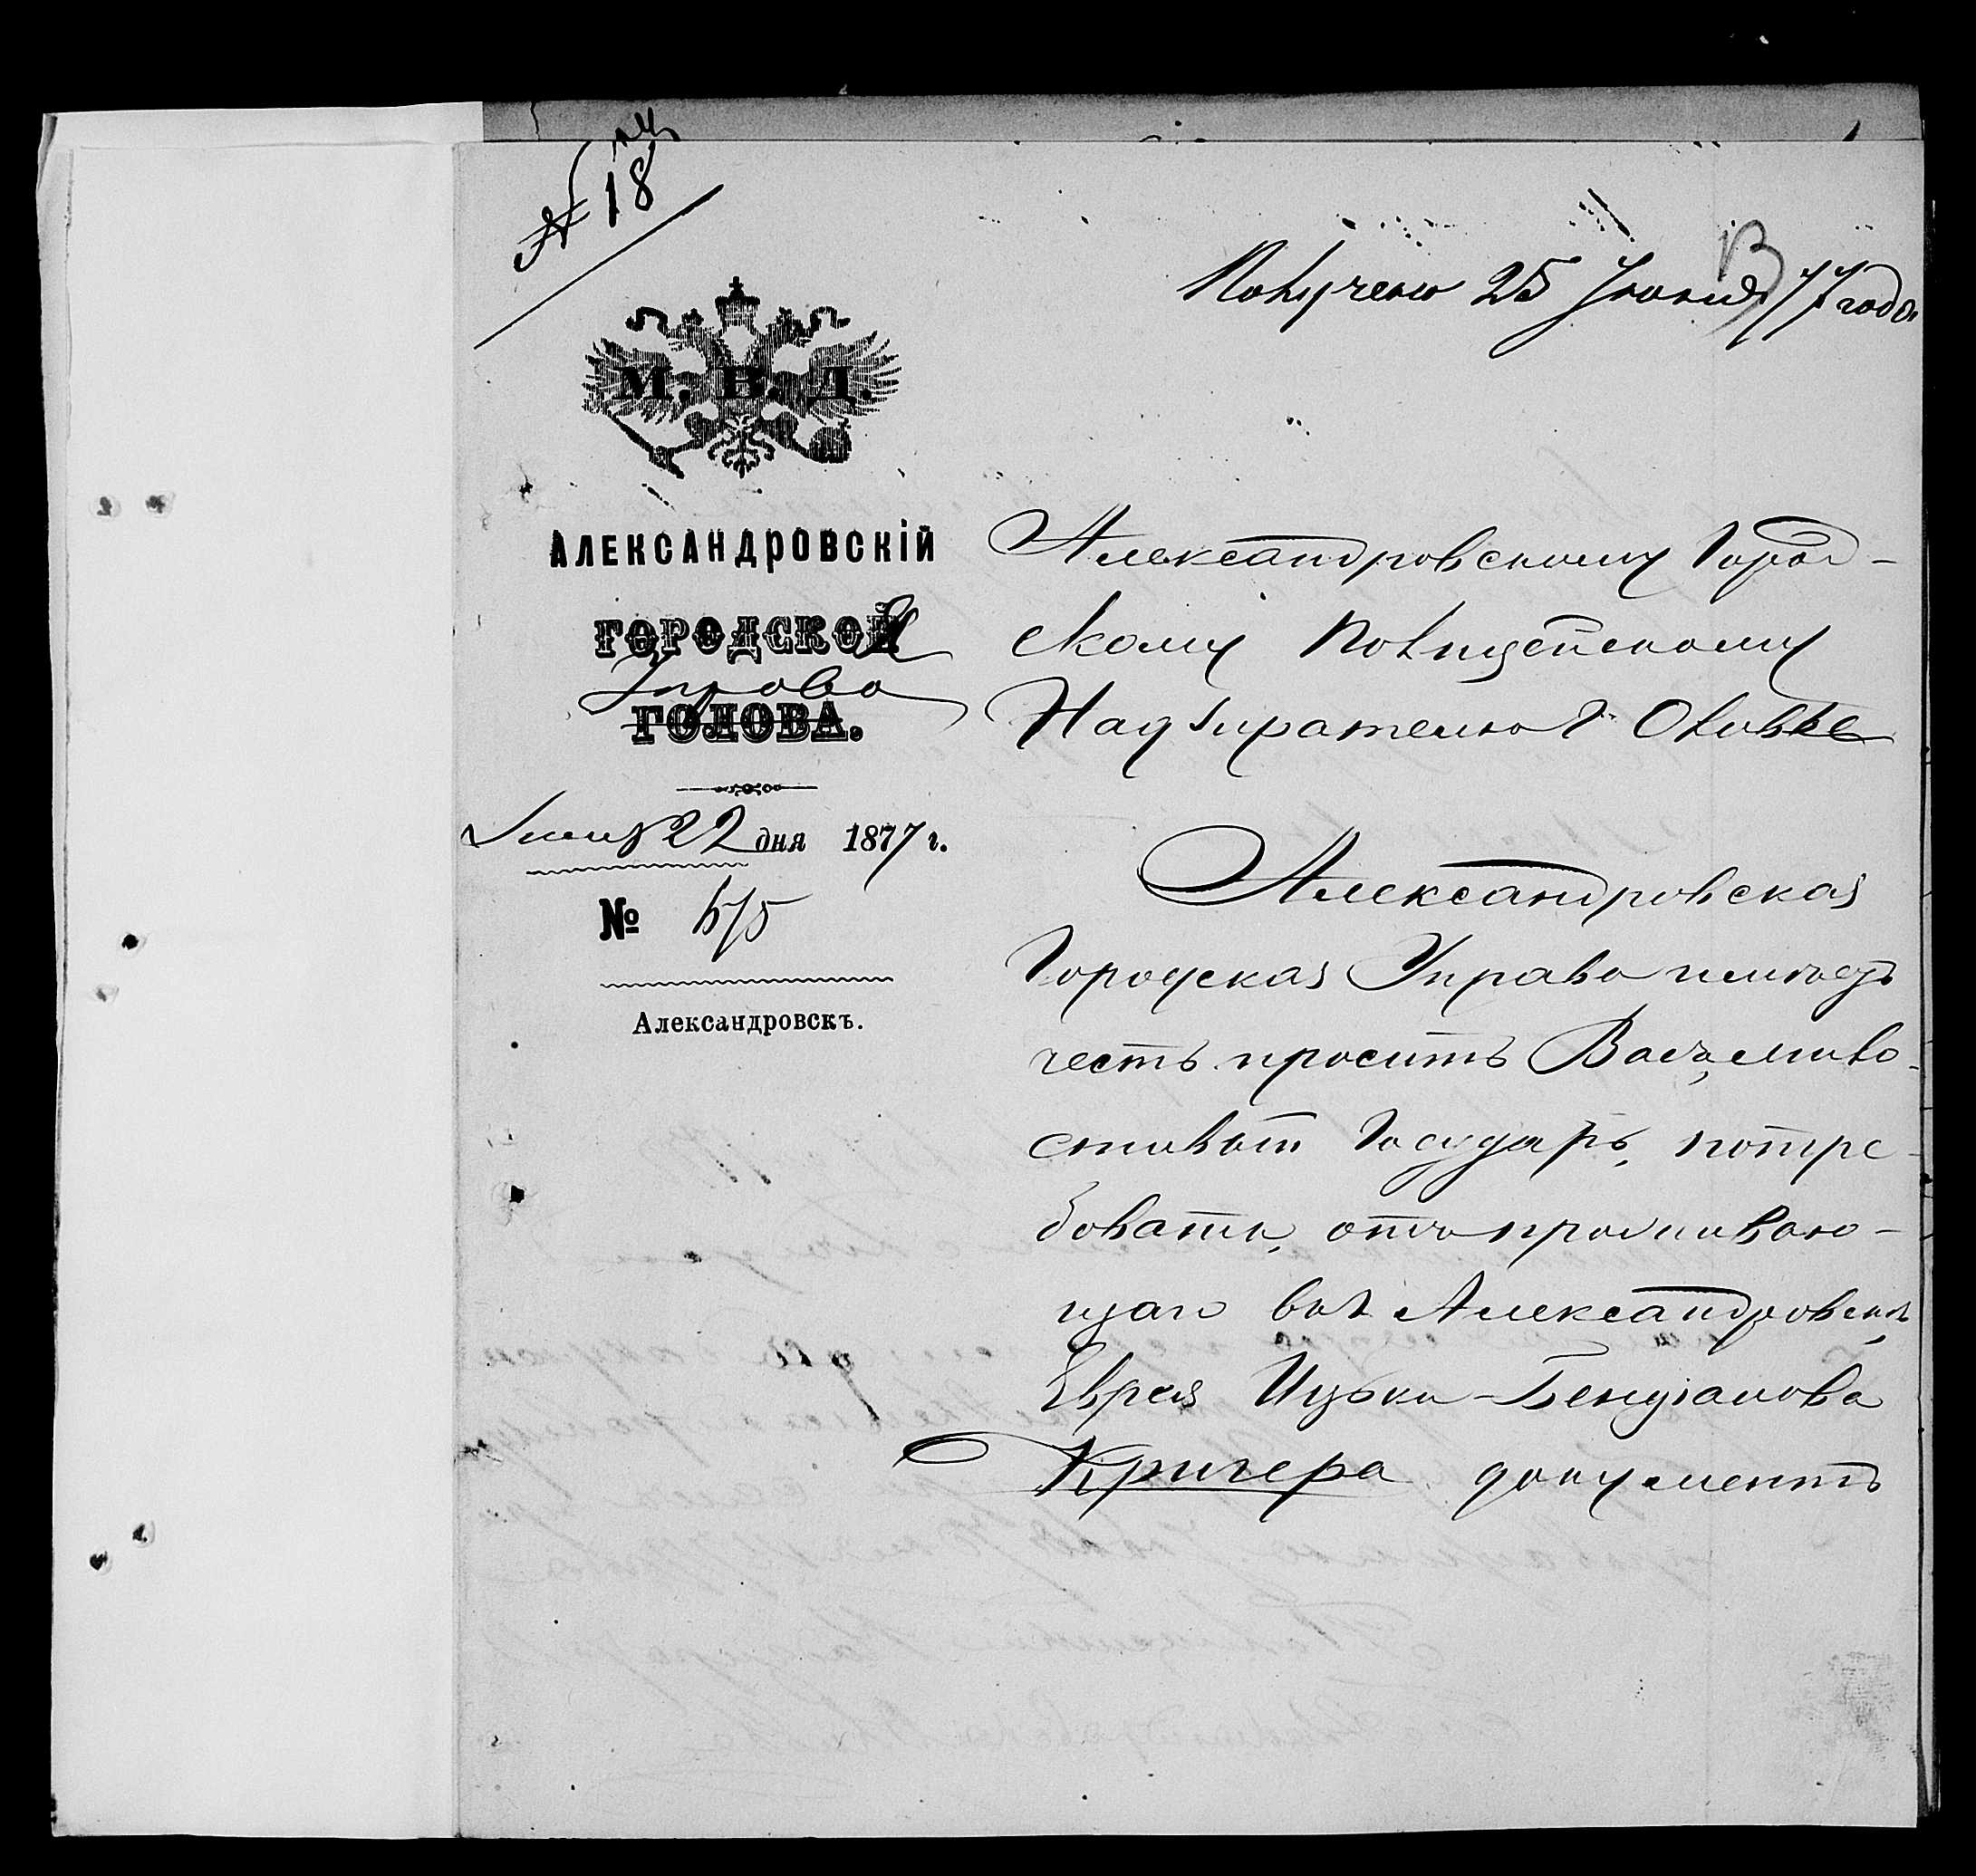 № 18
Получено 25 Июня 77 года
М. В. Д.
АЛЕКСАНДРОВСКІЙ
ГОРОДСКОЙ
Управа
ГОЛОВА.
22 дня 1877 г.
№ 575
Александровскъ.
Александровскому Город-
скому Полицейскому
Надзирателю Г.
Александровская
Городская Управа имѣетъ
честь просить Васъ, мило-
стивый Государь, потре-
бовать, отъ проживаю-
щаго въ г. Александровскѣ
Еврея Ицьки
Кригера документъ